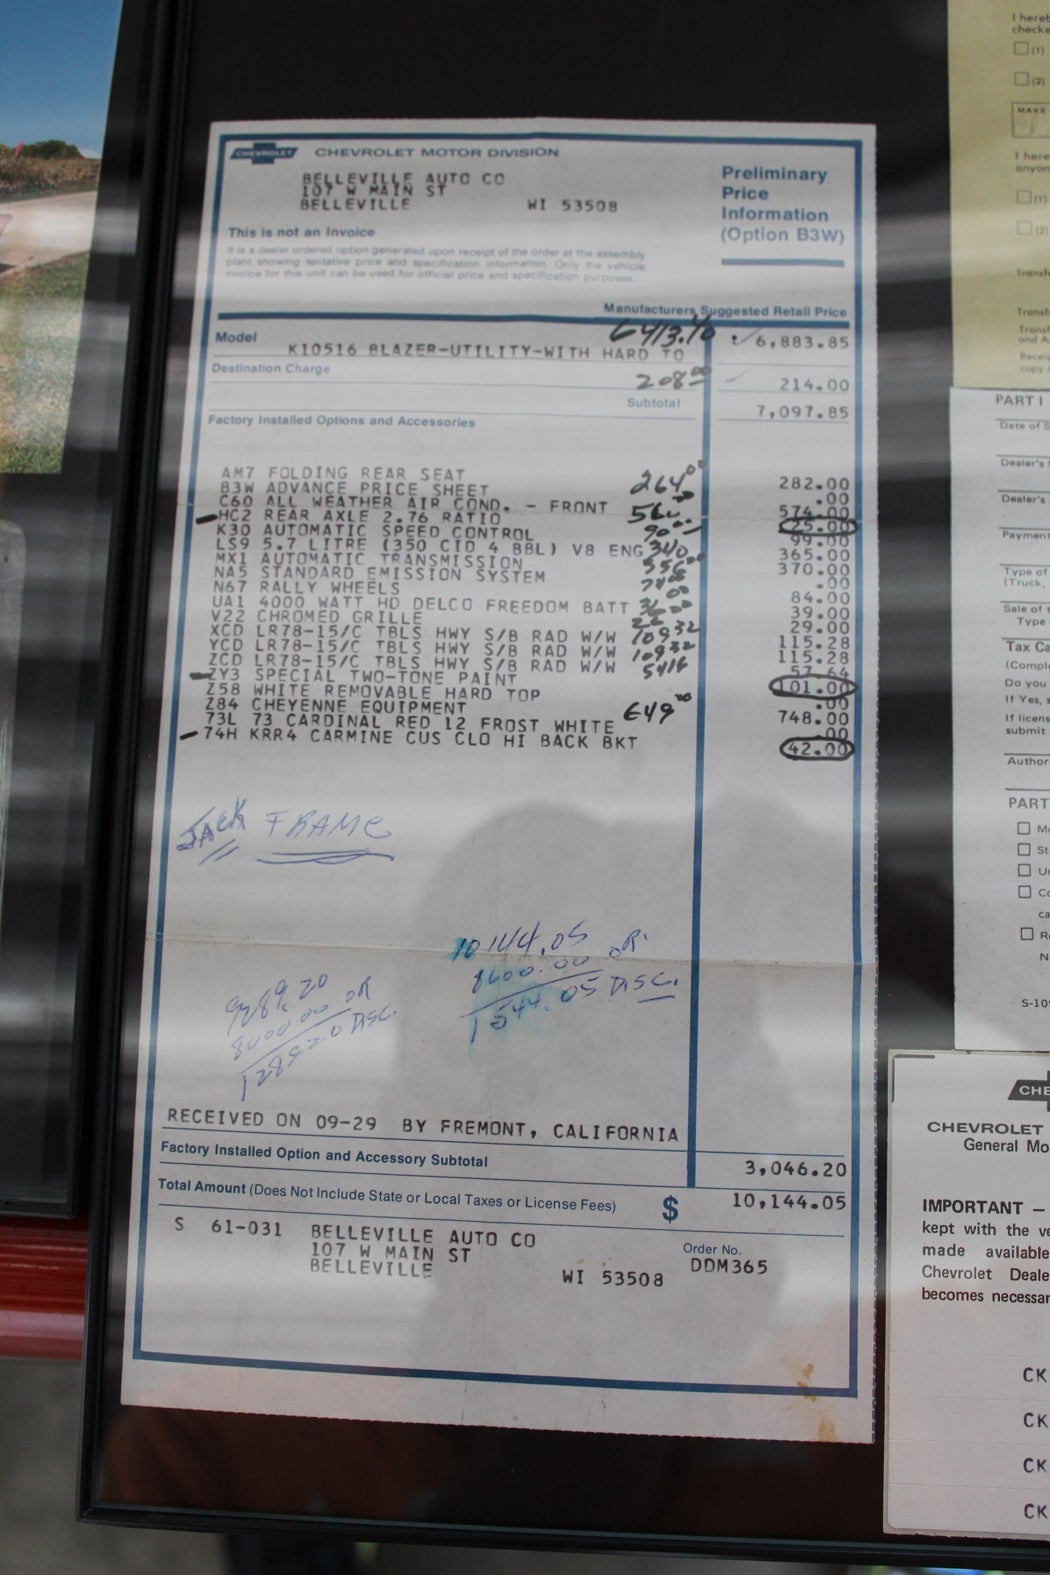 CHEVROLET CHEVROLET MOTOR DIVISION
BELLEVILLE AUTO CO
107 W MAIN ST
BELLEVILLE WI 53508
Preliminary
Price
Information
(Option B3W)
This is not an Invoice
It is a dealer ordered option generated upon receipt of the order at the assembly
plant showing tentative price and specification information. Only the vehicle
invoice for this unit can be used for official price and specification purposes.
Manufacturers Suggested Retail Price
Model 6,883.85
K10516 BLAZER-UTILITY-WITH HARD TO
Destination Charge 208.00 214.00
Subtotal 7,097.85
Factory Installed Options and Accessories
AM7 FOLDING REAR SEAT 264.00 282.00
B3W ADVANCE PRICE SHEET .00
C60 ALL WEATHER AIR COND. - FRONT 574.00
HC2 REAR AXLE 2.76 RATIO 25.00
K30 AUTOMATIC SPEED CONTROL 99.00
LS9 5.7 LITRE (350 CID 4 BBL) V8 ENG 340 365.00
MX1 AUTOMATIC TRANSMISSION 370.00
NA5 STANDARD EMISSION SYSTEM .00
N67 RALLY WHEELS 84.00
UA1 4000 WATT HD DELCO FREEDOM BATT 39.00
V22 CHROMED GRILLE 29.00
XCD LR78-15/C TBLS HWY S/B RAD W/W 109 32 115.28
YCD LR78-15/C TBLS HWY S/B RAD W/W 109 32 115.28
ZCD LR78-15/C TBLS HWY S/B RAD W/W 54 16 57.64
ZY3 SPECIAL TWO-TONE PAINT 101.00
Z58 WHITE REMOVABLE HARD TOP .00
Z84 CHEYENNE EQUIPMENT 748.00
73L 73 CARDINAL RED 12 FROST WHITE .00
74H KRR4 CARMINE CUS CLO HI BACK BKT 42.00
JACK FRAME
10144.05
8600.00 OR
1544.05 DISC.
9289.20
8000.00 OR
1289.20 DISC.
RECEIVED ON 09-29 BY FREMONT, CALIFORNIA
Factory Installed Option and Accessory Subtotal 3,046.20
Total Amount (Does Not Include State or Local Taxes or License Fees) $ 10,144.05
S 61-031 BELLEVILLE AUTO CO
107 W MAIN ST
BELLEVILLE WI 53508
Order No.
DDM365
I hereb
checke
(1)
(2)
MAKE
I here
anyon
(1)
(2)
Transf
Transf
Transf
and A
Receip
copy
PART I
Date of S
Dealer's
Dealer's
Paymen
Type of
(Truck,
Sale of
Type
Tax Ca
(Compl
Do you
If Yes, s
If licens
submit
Author
PART
M
St
U
C
ca
R
N
S-10
CHE
CHEVROLET
General Mo
IMPORTANT –
kept with the ve
made available
Chevrolet Deale
becomes necessar
CK
CK
CK
CK